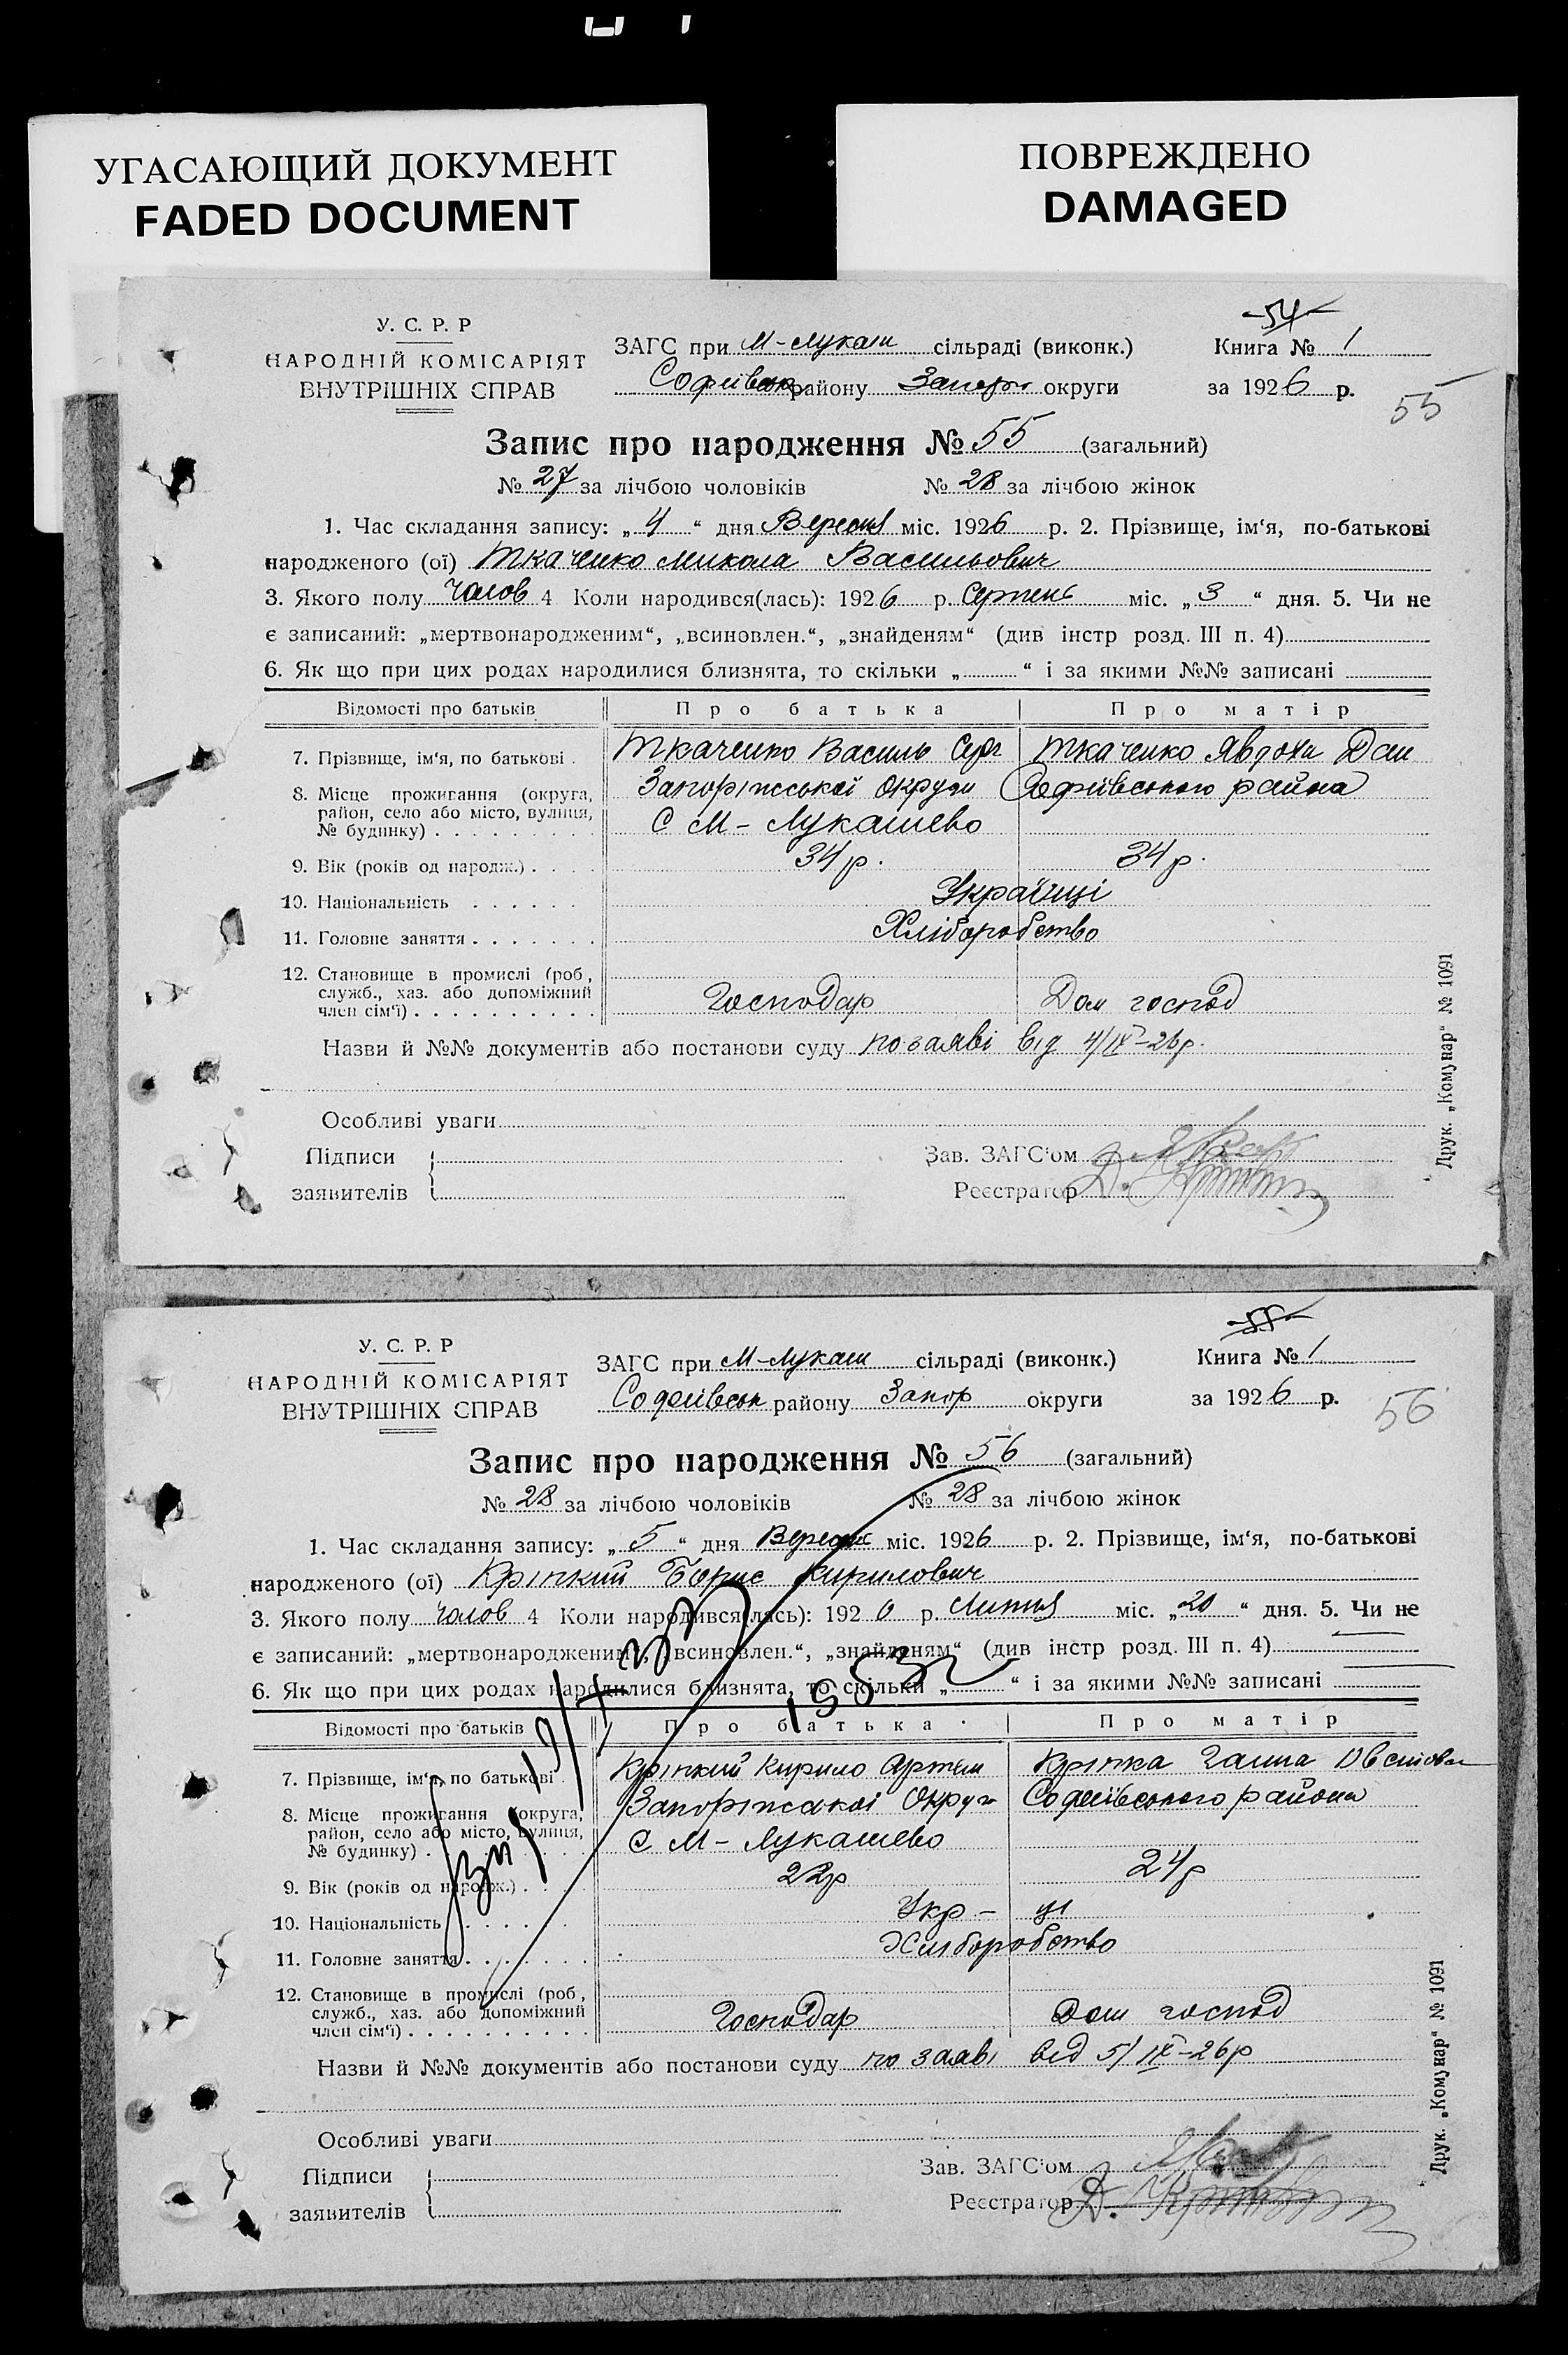 УГАСАЮЩИЙ ДОКУМЕНТ
FADED DOCUMENT
ПОВРЕЖДЕНО
DAMAGED
У. С. Р. Р
НАРОДНІЙ КОМІСАРІЯТ
ВНУТРІШНІХ СПРАВ
ЗАГС при М-Лукаш сільраді (виконк.)
Софіївськ району Запоріз округи
54
Книга № 1
за 1926 р.
55
Запис про народження № 55 (загальний)
№ 27 за лічбою чоловіків № 28 за лічбою жінок
1. Час складання запису: „ 4 “ дня Вересня міс. 1926 р. 2. Прізвище, ім‘я, по-батькові
народженого (ої) Ткаченко Микола Васильович
3. Якого полу Чолов 4 Коли народився(лась): 1926 р. Серпень міс. „ 3 “ дня. 5. Чи не
є записаний: „мертвонародженим“, „всиновлен.“, „знайденям“ (див інстр розд. III п. 4)
6. Як що при цих родах народилися близнята, то скільки „ “ і за якими №№ записані
Відомості про батьків Про батька Про матір
7. Прізвище, ім‘я, по батькові . Ткаченко Василь Серг Ткаченко Явдоха Дан
8. Місце проживання (округа, район, село або місто, вулиця, № будинку) Запоріжської Округи Софіївського района
С М-Лукашево
9. Вік (років од народж.) 34 р. 34 р.
10. Національність Українці
11. Головне заняття Хліборобство
12. Становище в промислі (роб, служб., хаз. або допоміжний член сім‘ї) Господар Дом господ
Назви й №№ документів або постанови суду по заяві від 4/IX-26р.
Особливі уваги
Підписи
заявителів
Зав. ЗАГС‘ом
Реєстратор Д.
Друк. „Комунар“ № 1091
У. С. Р. Р
НАРОДНІЙ КОМІСАРІЯТ
ВНУТРІШНІХ СПРАВ
ЗАГС при М-Лукаш сільраді (виконк.)
Софіївськ району Запор округи
55
Книга № 1
за 1926 р.
56
Запис про народження № 56 (загальний)
№ 28 за лічбою чоловіків № 28 за лічбою жінок
1. Час складання запису: „ 5 “ дня Вересня міс. 1926 р. 2. Прізвище, ім‘я, по-батькові
народженого (ої) Кріпкий Борис Кирилович
3. Якого полу Чолов 4 Коли народився(лась): 192 р. Липня міс. „ 20 “ дня. 5. Чи не
є записаний: „мертвонародженим“, „всиновлен.“, „знайденям“ (див інстр розд. III п. 4)
6. Як що при цих родах народилися близнята, то скільки „ “ і за якими №№ записані
Відомості про батьків Про батька Про матір
7. Прізвище, ім‘я, по батькові . Кріпкий Кирило Артем Кріпка Ганна
8. Місце проживання (округа, район, село або місто, вулиця, № будинку) Запоріжської Округи Софіївського района
С М-Лукашево
9. Вік (років од народж.) 22р 24р
10. Національність Укр-ці
11. Головне заняття Хліборобство
12. Становище в промислі (роб, служб., хаз. або допоміжний член сім‘ї) Господар Дом господ
Назви й №№ документів або постанови суду по заяві від 5/IX-26р
Особливі уваги
Підписи
заявителів
Зав. ЗАГС‘ом
Реєстратор Д.
Друк. „Комунар“ № 1091